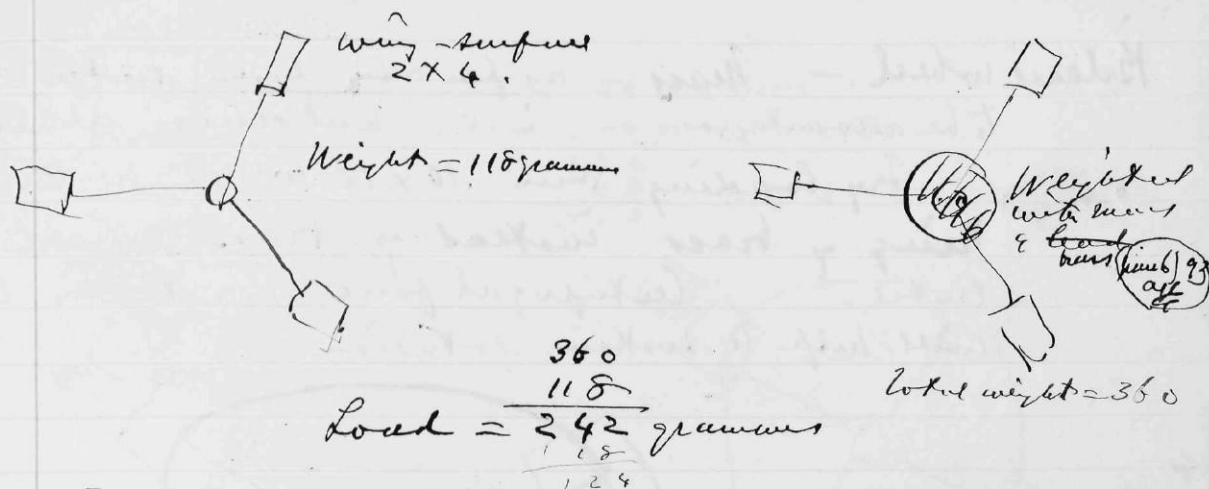 wing-surface
2 × 4.
Weight = 118 grammes
Weighted
with mass
brass
Total weight = 360
360
118
Load = 242 grammes
118
124